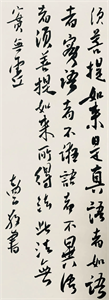 須菩提如来是真語者如語
者實語者不誑語者不異語
者須菩提如来所得法此法無
實無虛
書